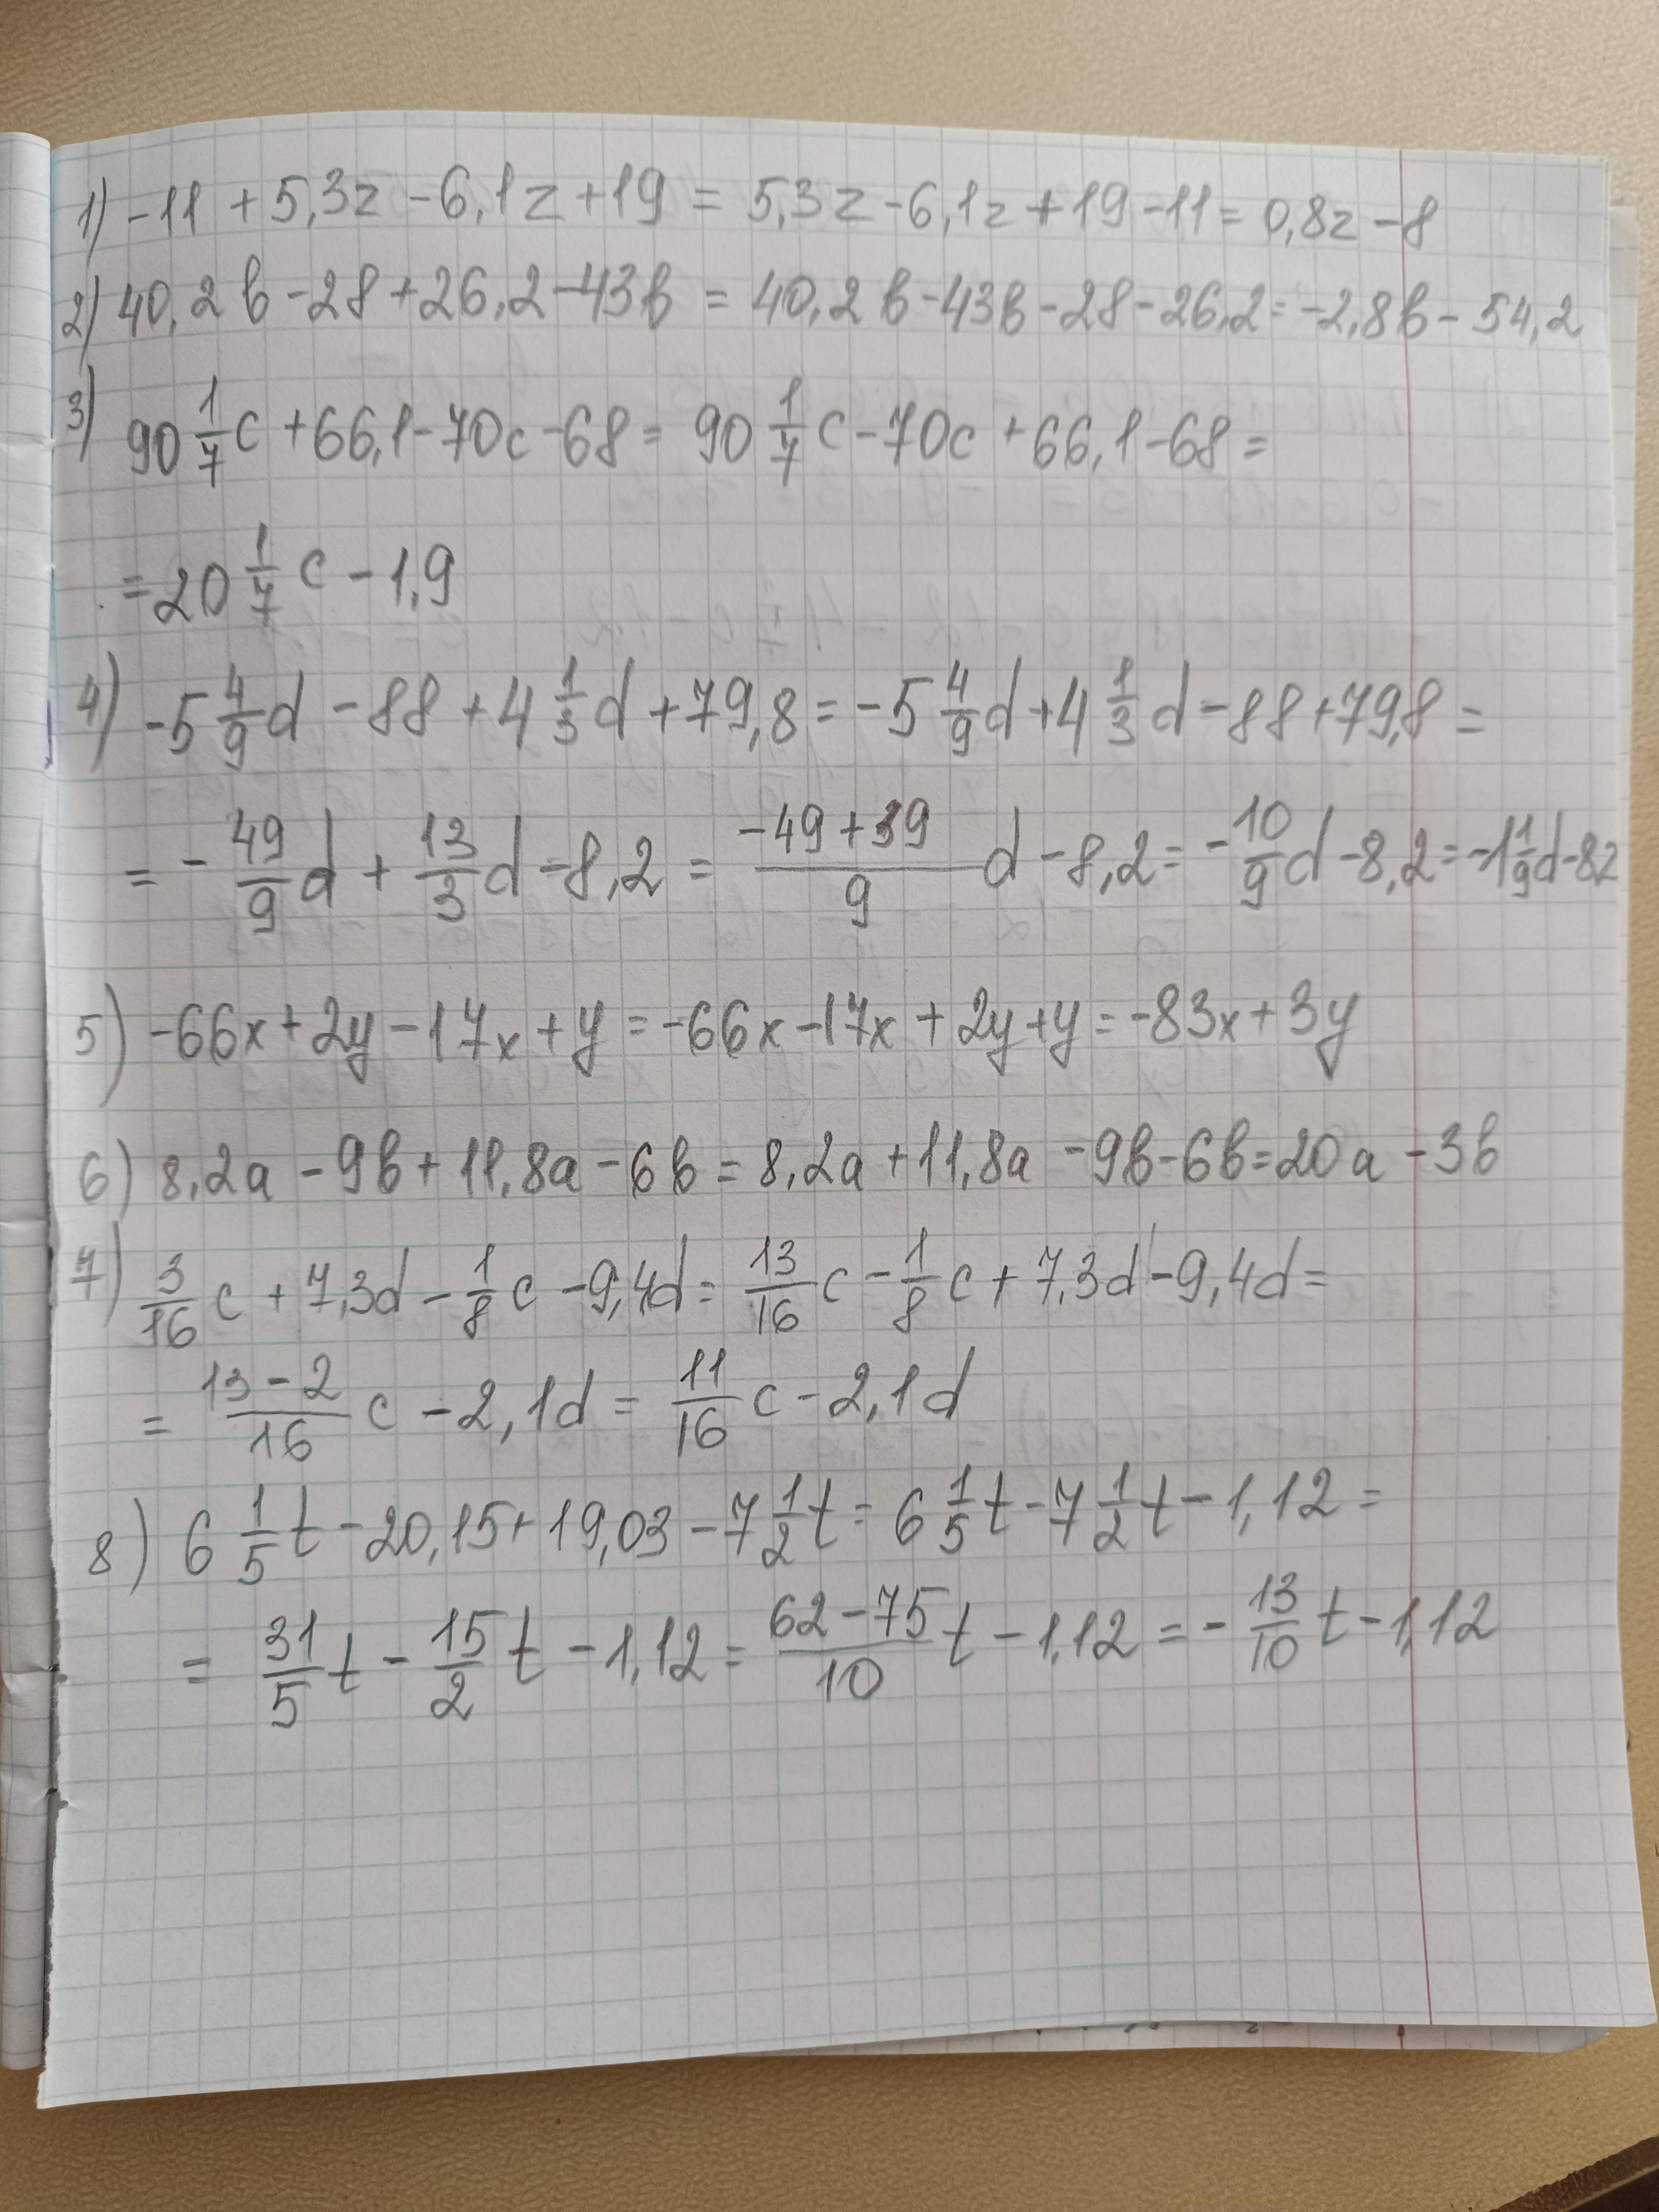 1) -11 + 5,3z - 6,1z + 19 = 5,3z - 6,1z + 19 - 11 = 0,8z - 8
2) 40,2b - 28 + 26,2 - 43b = 40,2b - 43b - 28 - 26,2 = -2,8b - 54,2
3) 90 1/7 c + 66,1 - 70c - 68 = 90 1/7 c - 70c + 66,1 - 68 =
= 20 1/7 c - 1,9
4) -5 4/9 d - 88 + 4 1/3 d + 79,8 = -5 4/9 d + 4 1/3 d - 88 + 79,8 =
= - 49/9 d + 13/3 d - 8,2 = (-49 + 39)/9 d - 8,2 = - 10/9 d - 8,2 = -1 1/9 d - 8,2
5) -66x + 2y - 17x + y = -66x - 17x + 2y + y = -83x + 3y
6) 8,2a - 9b + 11,8a - 6b = 8,2a + 11,8a - 9b - 6b = 20a - 3b
7) 3/16 c + 7,3d - 1/8 c - 9,4d = 13/16 c - 1/8 c + 7,3d - 9,4d =
= (13 - 2)/16 c - 2,1d = 11/16 c - 2,1d
8) 6 1/5 t - 20,15 + 19,03 - 7 1/2 t = 6 1/5 t - 7 1/2 t - 1,12 =
= 31/5 t - 15/2 t - 1,12 = (62 - 75)/10 t - 1,12 = - 13/10 t - 1,12